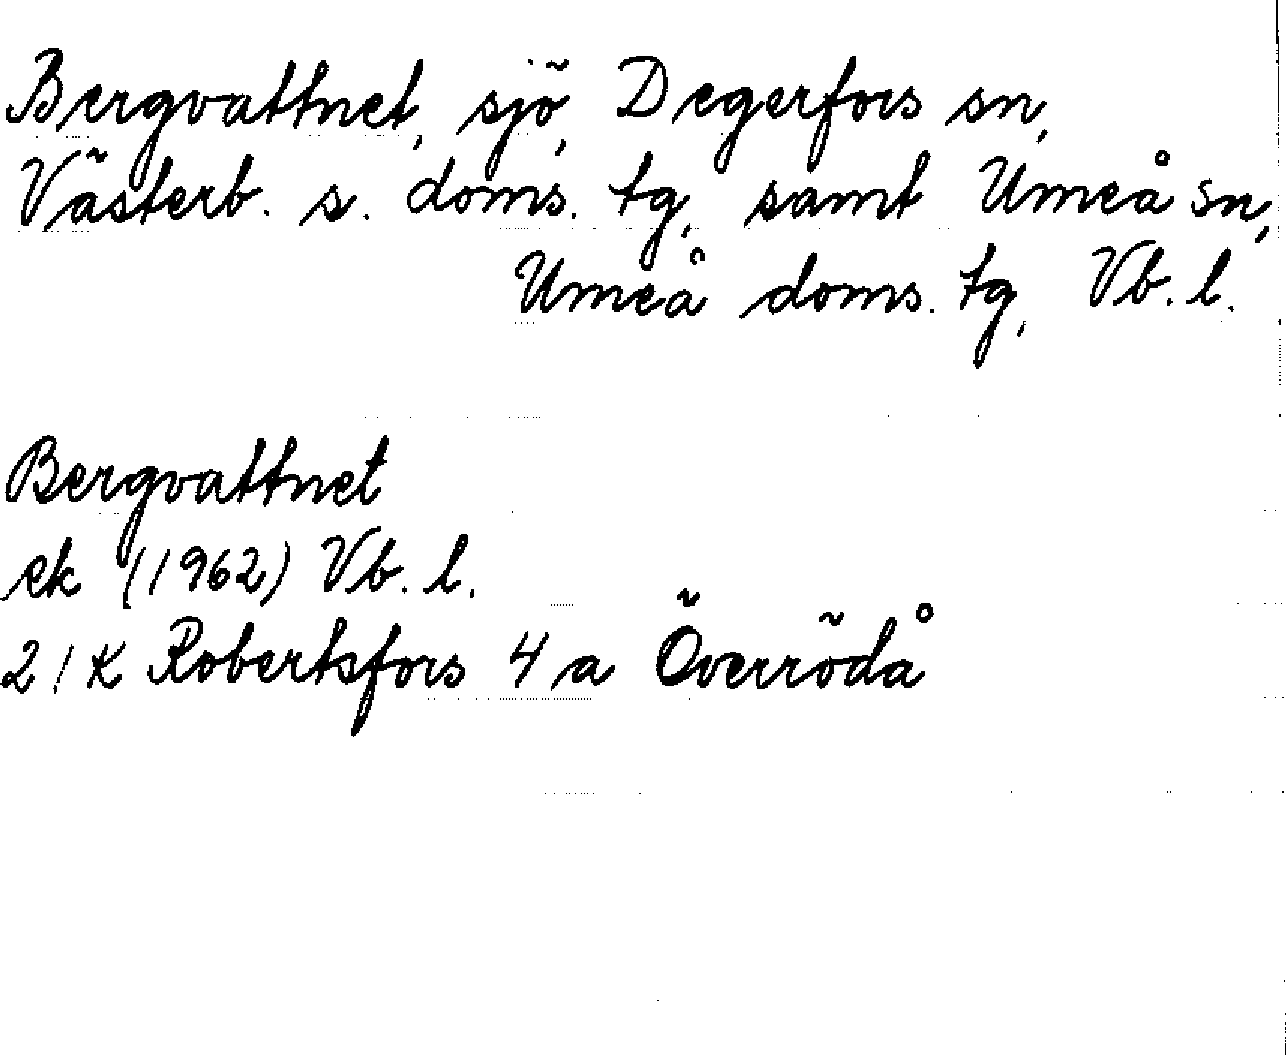 Bergvattnet, sjö, Degerfors sn,
Västerb. s. doms. tg, samt Umeå sn,
Umeå doms. tg, Vb. l.
Bergvattnet
ek (1962) Vb. l.
21K Robertsfors 4a Överrödå